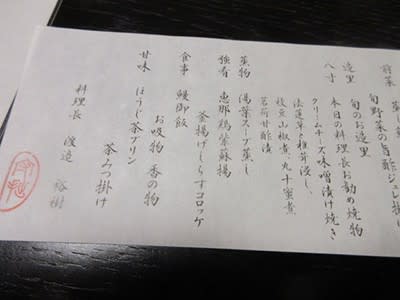 前菜 蒸し
旬野菜の旨酢ジュレ掛け
造里 旬のお造里
八寸 本日の料理長お勧め焼物
クリームチーズ味噌漬け焼き
法蓮草と椎茸浸し、
枝豆山椒煮、丸十蜜煮、
茗荷甘酢漬
蒸物 湯葉スープ蒸し
強肴 恵那鶏紫蘇揚
釜揚げしらすコロッケ
食事 鰻御飯
お吸物 香の物
甘味 ほうじ茶プリン
茶みつ掛け
料理長 渡邉 裕樹